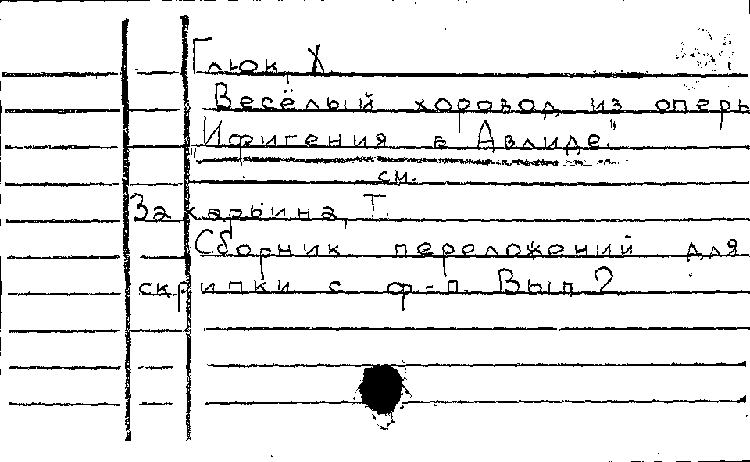 Глюк, Х.
Весёлый хоровод из оперы
"Ифигения в Авлиде."
см.
Захарьина, Т.
Сборник переложений для
скрипки с ф-п. Вып. 2